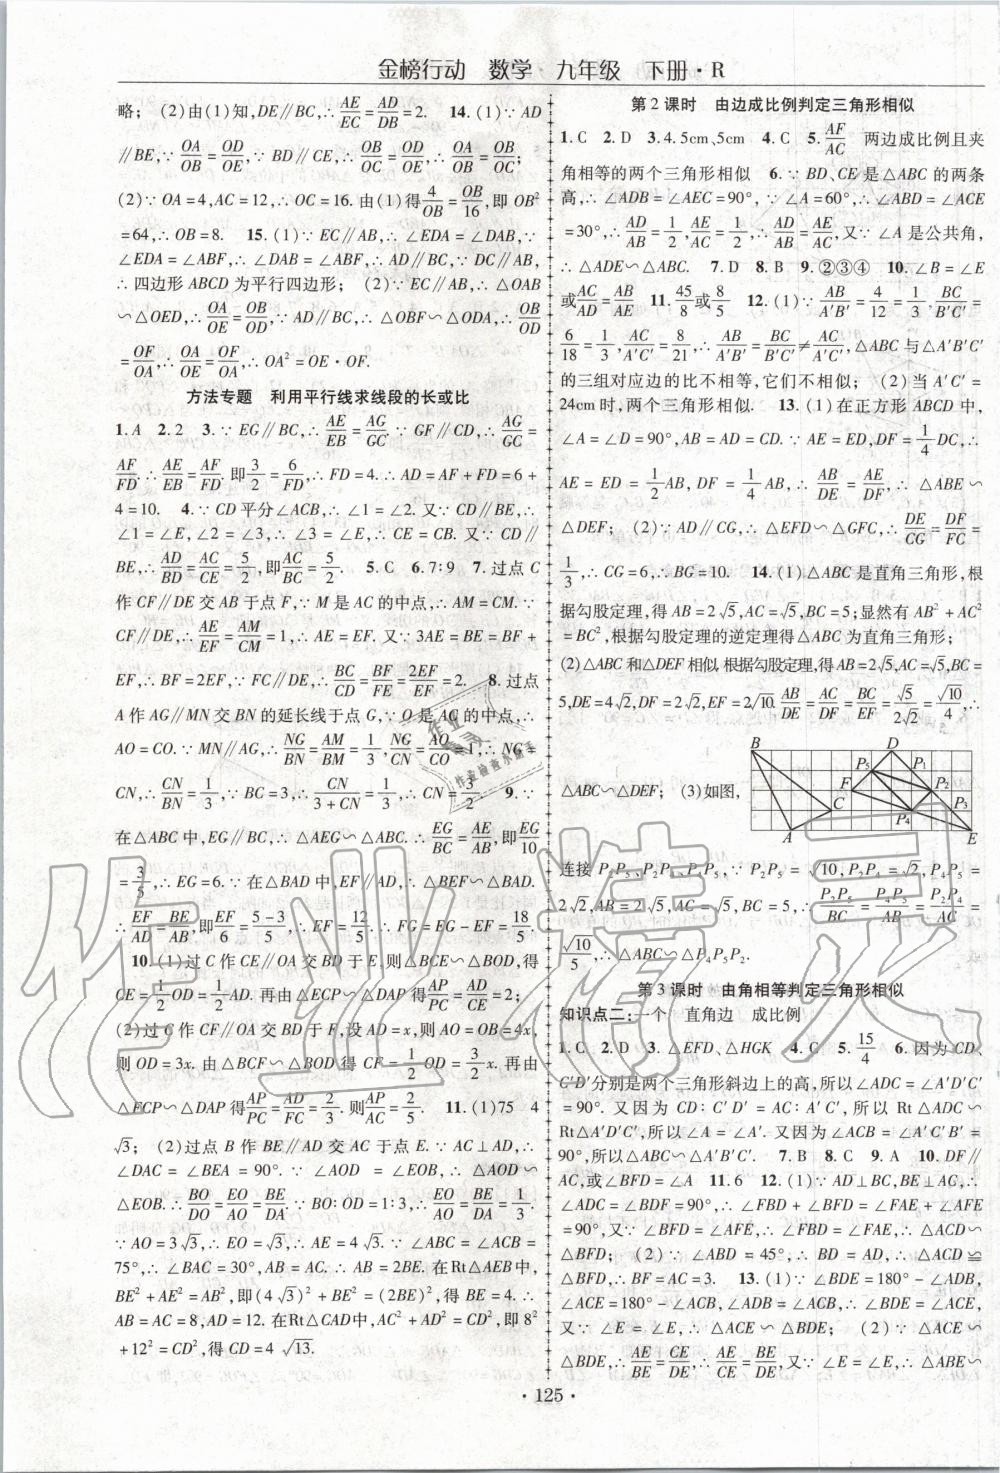 金榜行动 数学·九年级 下册·R
略；(2)由(1)知,DE∥BC,∴AE/EC=AD/DB=2. 14.(1)∵AD
∥BE,∵OA/OB=OD/OE,∵BD∥CE,∴OB/OC=OD/OE,∴OA/OB=OB/OC;
(2)∵OA=4,AC=12,∴OC=16.由(1)得4/OB=OB/16,即OB²
=64,∴OB=8. 15.(1)∵EC∥AB,∴∠EDA=∠DAB,∵
∠EDA=∠ABF,∴∠DAB=∠ABF,∴AD∥BC,∵DC∥AB,
∴四边形ABCD为平行四边形；(2)∵EC∥AB,∴△OAB
∽△OED,∴OA/OE=OB/OD,∵AD∥BC,∴△OBF∽△ODA,∴OB/OD
=OF/OA,∴OA/OE=OF/OA,∴OA²=OE·OF.
方法专题 利用平行线求线段的长或比
1.A 2.2 3.∵EG∥BC,∴AE/EB=AG/GC ∵GF∥CD,∴AG/GC=
AF/FD.∴AE/EB=AF/FD.即3/2=6/FD,∴FD=4.∴AD=AF+FD=6+
4=10. 4.∵CD平分∠ACB,∴∠1=∠2.又∵CD∥BE,∴
∠1=∠E,∠2=∠3,∴∠3=∠E,∴CE=CB.又∵CD∥
BE,∴AD/BD=AC/CE=5/2,即AC/BC=5/2. 5.C 6.7:9 7.过点C
作CF∥DE交AB于点F,∵M是AC的中点,∴AM=CM.∵
CF∥DE,∴AE/EF=AM/CM=1,∴AE=EF.又∵3AE=BE=BF+
EF,∴BF=2EF,∵FC∥DE,∴BC/CD=BF/FE=2EF/EF=2. 8.过点
A作AG∥MN交BN的延长线于点G,∵O是AC的中点,∴
AO=CO.∵MN∥AG,∴NG/BN=AM/BM=1/3,NG/CN=AO/CO=1,∴NG=
CN,∴CN/BN=1/3,∵CN/(3+CN)=1/3,∴CN=3/2. 9.∵
在△ABC中,EG∥BC,∴△AEG∽△ABC.∴EG/BC=AE/AB,即EG/10
=3/5,∴EG=6.∵在△BAD中,EF∥AD,∴△BEF∽△BAD.
∴EF/AD=BE/AB,即EF/6=(5-3)/5,∴EF=12/5.∴FG=EG-EF=18/5.
10.(1)过C作CE∥OA交BD于E,则△BCE∽△BOD,得
CE=1/2OD=1/2AD.再由△ECP∽△DAP得AP/PC=AD/CE=2;
(2)过C作CF∥OA交OB于F,设AD=x,则AO=OB=4x,
则OD=3x.由△BCF∽△BOD得CF=1/2OD=3/2x.再由
△ECP∽△DAP得AP/PC=AD/FC=2/3.则AP/AC=2/5. 11.(1)75 4
√3;(2)过点B作BE∥AD交AC于点E.∵AC⊥AD,∴
∠DAC=∠BEA=90°.∵∠AOD=∠EOB,∴△AOD∽
△EOB.∴BO/DO=EO/AO=BE/DA.∵BO:OD=1:3,∴EO/AO=BE/DA=1/3.
∵AO=3√3,∴EO=√3,∴AE=4√3.∵∠ABC=∠ACB=
75°,∴∠BAC=30°,AB=AC.∴AB=2BE.在Rt△AEB中,
BE²+AE²=AB²,即(4√3)²+BE²=(2BE)²,得BE=4.∴
AB=AC=8,AD=12.在Rt△CAD中,AC²+AD²=CD²,即8²
+12²=CD²,得CD=4√13.
第2课时 由边成比例判定三角形相似
1.C 2.D 3.4.5cm、5cm 4.C 5.AF/AC 两边成比例且夹
角相等的两个三角形相似 6.∵BD、CE是△ABC的两条
高,∴∠ADB=∠AEC=90°,∵∠A=60°,∴∠ABD=∠ACE
=30°,∴AD/AB=1/2,AE/AC=1/2,∴AD/AB=AE/AC,又∵∠A是公共角,
∴△ADE∽△ABC. 7.D 8.B 9.②③④ 10.∠B=∠E
或AC/AD=AB/AE 11.45/8或8/5 12.(1)∵AB/A′B′=4/12=1/3,BC/B′C′=
6/18=1/3,AC/A′C′=8/21,∴AB/A′B′=BC/B′C′≠AC/A′C′,∴△ABC与△A′B′C′
的三组对应边的比不相等,它们不相似；(2)当A′C′=
24cm时,两个三角形相似. 13.(1)在正方形ABCD中,
∠A=∠D=90°,AB=AD=CD.∵AE=ED,DF=1/4DC,∴
AE=ED=1/2AB,DF=1/4AB,∴AB/DE=AE/DF,∴△ABE∽
△DEF;(2)∵AD∥CG,∴△EFD∽△GFC,∴DE/CG=DF/FC=
1/3,∴CG=6,∴BG=10. 14.(1)△ABC是直角三角形,根
据勾股定理,得AB=2√5,AC=√5,BC=5;显然有AB²+AC²
=BC²,根据勾股定理的逆定理得△ABC为直角三角形；
(2)△ABC和△DEF相似.根据勾股定理,得AB=2√5,AC=√5,BC=
5,DE=4√2,DF=2√2,EF=2√10.AB/DE=AC/DF=BC/EF=√5/2√2=√10/4,∴
△ABC∽△DEF;(3)如图,
B D P₁ P₅ F P₂ C P₄ P₃ A E
连接P₂P₅、P₂P₄、P₄P₅,∵P₂P₅=√10,P₂P₄=√2,P₄P₅=
2√2,AB=2√5,AC=√5,BC=5,∴P₂P₅/BC=P₄P₅/AB=P₂P₄/AC=
√10/5,∴△ABC∽△P₄P₅P₂.
第3课时 由角相等判定三角形相似
知识点二:一个 直角边 成比例
1.C 2.D 3.△EFD、△HGK 4.C 5.15/4 6.因为CD、
C′D′分别是两个三角形斜边上的高,所以∠ADC=∠A′D′C′
=90°.又因为CD:C′D′=AC:A′C′,所以Rt△ADC∽
Rt△A′D′C′,所以∠A=∠A′.又因为∠ACB=∠A′C′B′=90°,
所以△ABC∽△A′B′C′. 7.B 8.C 9.A 10.DF∥
AC,或∠BFD=∠A 11.6 12.(1)∵AD⊥BC,BE⊥AC,∴
∠ADC=∠BDF=∠BEC=90°,∴∠FBD+∠BFD=∠FAE+∠AFE
=90°,又∵∠BFD=∠AFE,∴∠FBD=∠FAC,∴△ACD∽
△BFD;(2)∵∠ABD=45°,∴BD=AD,∴△ACD≌
△BFD,∴BF=AC=3. 13.(1)∵∠BDE=180°-∠ADB,
∠ACE=180°-∠ACB,∠ADB=∠ACB,∴∠BDE=∠ACE,
又∵∠E=∠E,∴△ACE∽△BDE;(2)∵△ACE∽
△BDE,∴AE/BE=CE/DE,∴AE/CE=BE/DE,又∵∠E=∠E,∴△ABE∽
·125·
作业精灵